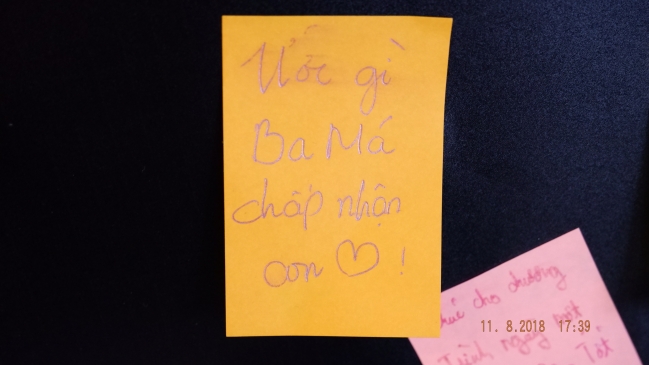 Ước gì
Ba Má
chấp nhận
con ♡ !
cho chương
Trình ngày một
Tốt
11. 8.2018 17:39